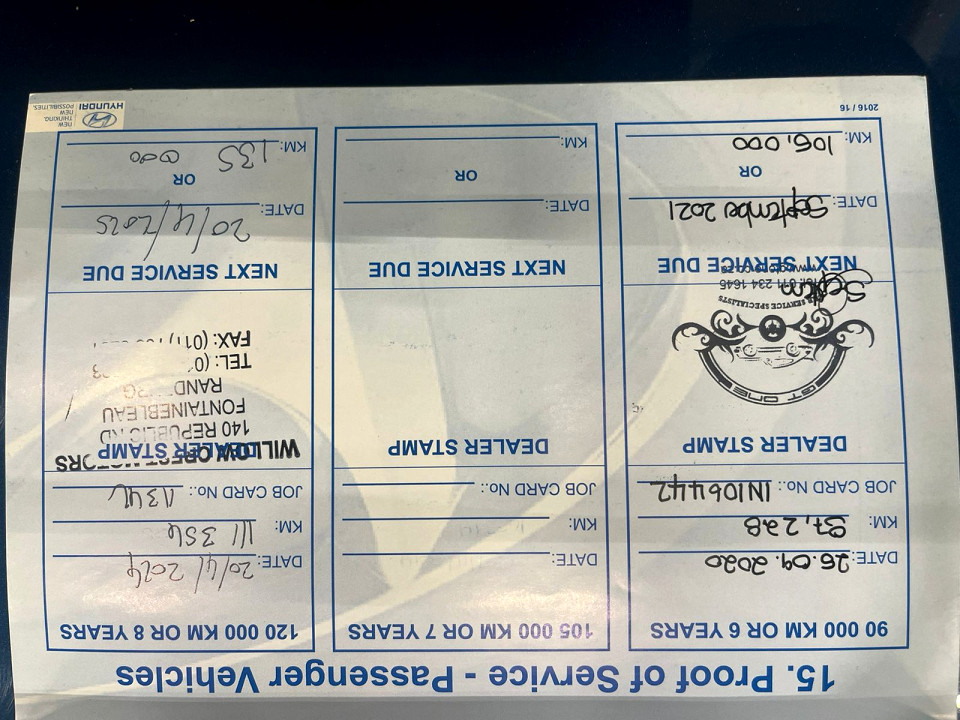 15. Proof of Service - Passenger Vehicles
90 000 KM OR 6 YEARS
DATE: 26.09.2020
KM: 87,228
JOB CARD No.: IN106442
DEALER STAMP
GT ONE
SERVICE SPECIALISTS
011 234 1645
NEXT SERVICE DUE
DATE: September 2021
OR
KM: 106,000
2016 / 16
105 000 KM OR 7 YEARS
DATE:
KM:
JOB CARD No.:
DEALER STAMP
NEXT SERVICE DUE
DATE:
OR
KM:
120 000 KM OR 8 YEARS
DATE: 20/4/2024
KM: 111 356
JOB CARD No.:
DEALER STAMP
WILLOW CREST MOTORS
140 REPUBLIC RD
FONTAINEBLEAU
TEL:
FAX: (011)
NEXT SERVICE DUE
DATE: 20/4/2025
OR
KM: 135 000
HYUNDAI
NEW
THINKING.
NEW
POSSIBILITIES.